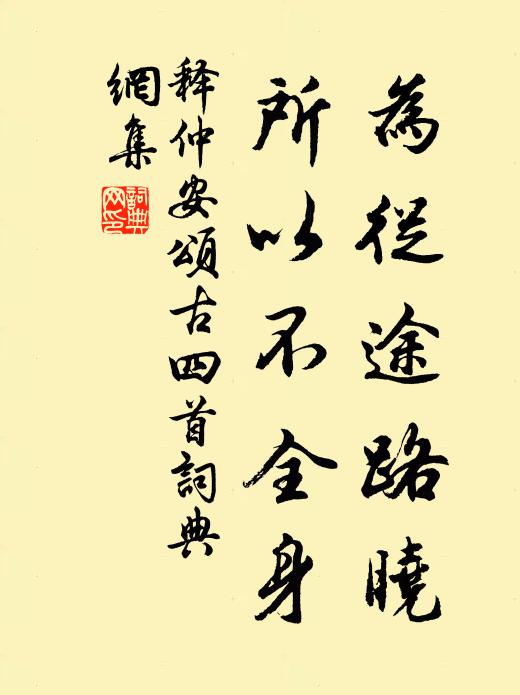 為從途路曉
所以不全身
釋仲安頌古四首詞典
網集
詞典
网印